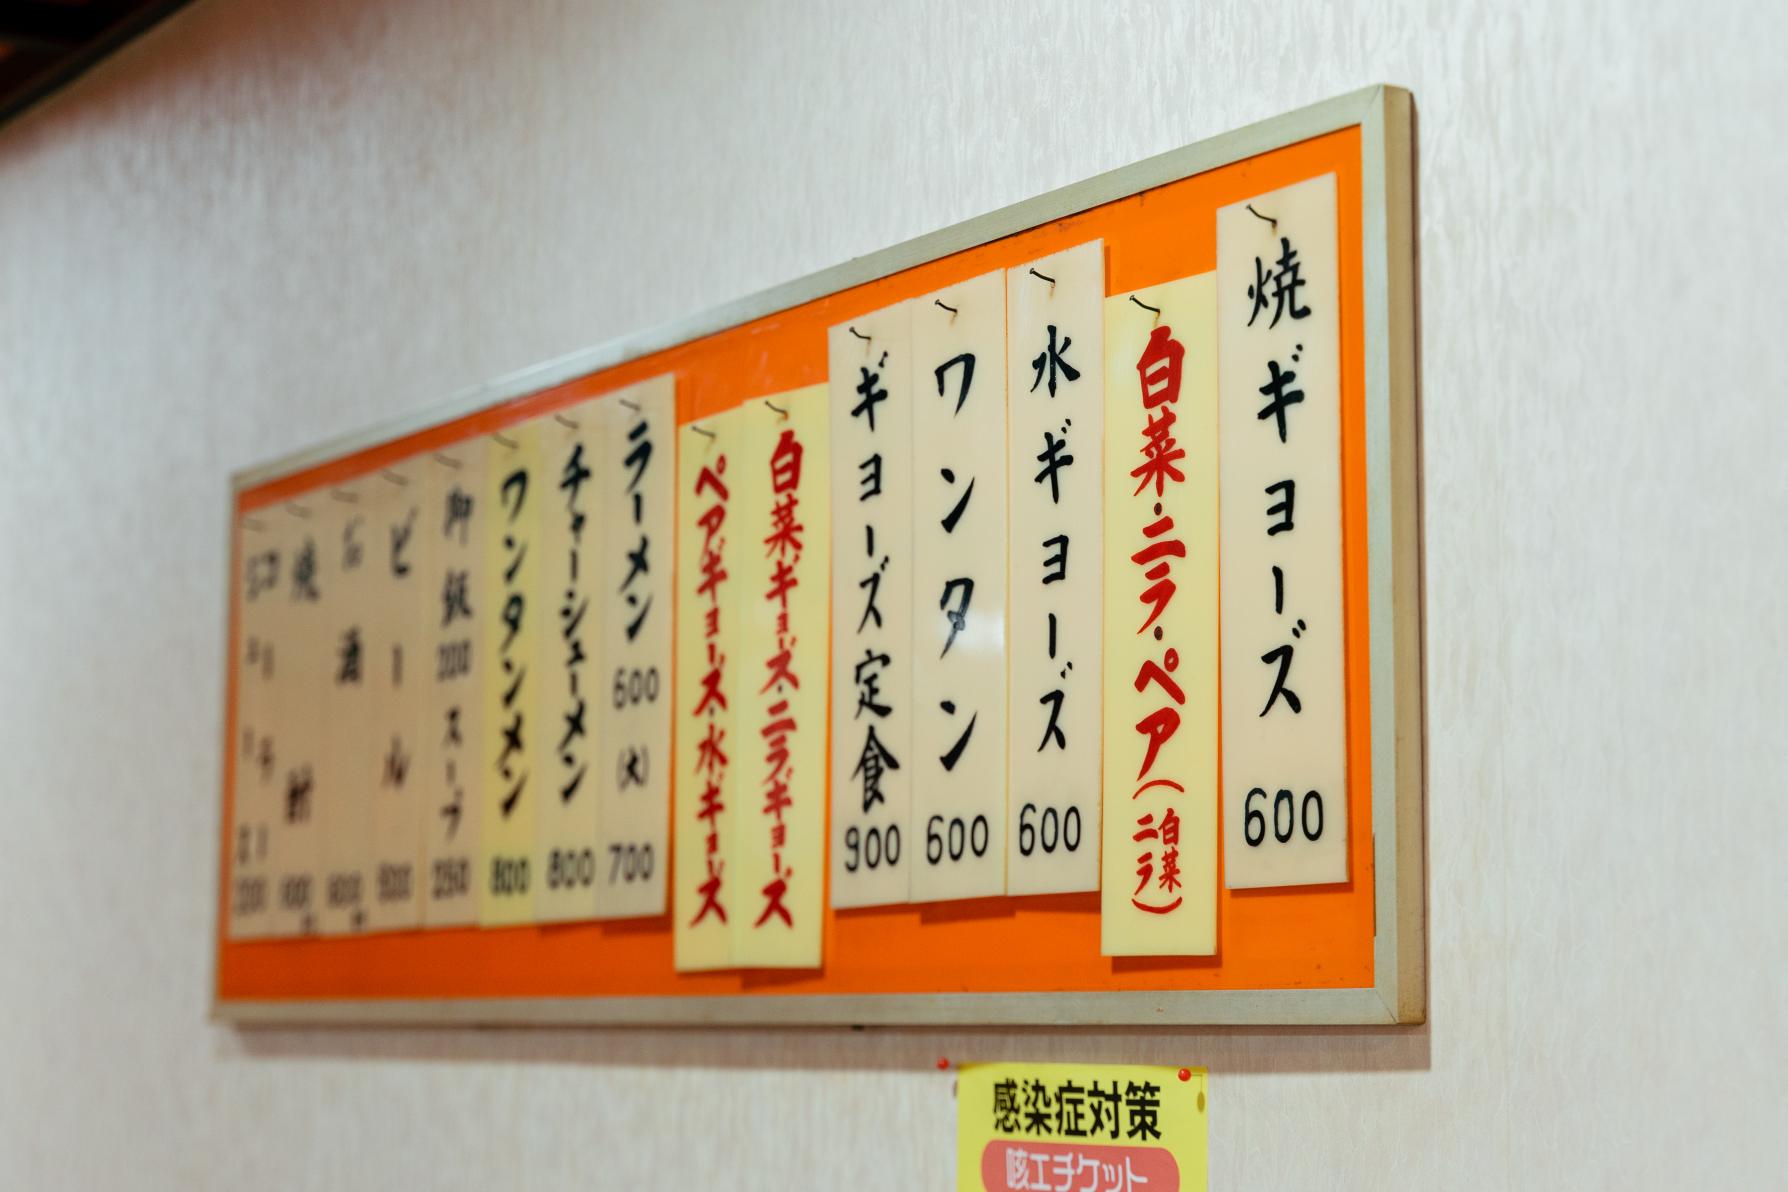 焼ギョーズ 600
白菜・ニラ・ペア(白菜ニラ)
水ギョーズ 600
ワンタン 600
ギョーズ定食 900
白菜ギョーズ・ニラギョーズ
ペアギョーズ・水ギョーズ
ラーメン 600 (大) 700
チャーシューメン 800
ワンタンメン 800
御飯200 スープ 250
ビール
お酒
焼酎
コーラ
ジュース
感染症対策
咳エチケット